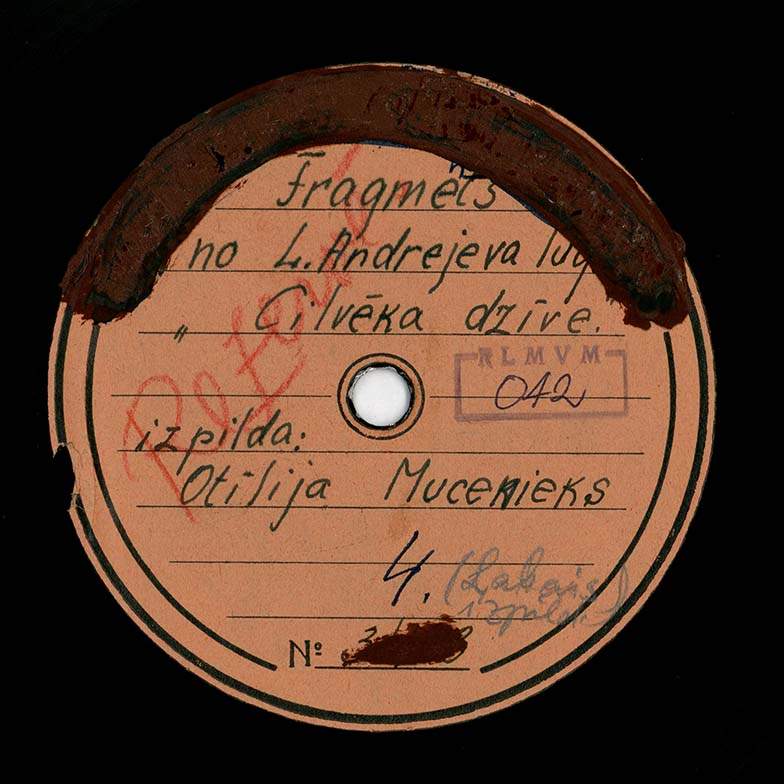 Fragmets
no L. Andrejeva
„ Cilvēka dzīve."
RLMVM
042
izpilda:
Otīlija Mucenieks
4. (Labais
izpild.)
Nº